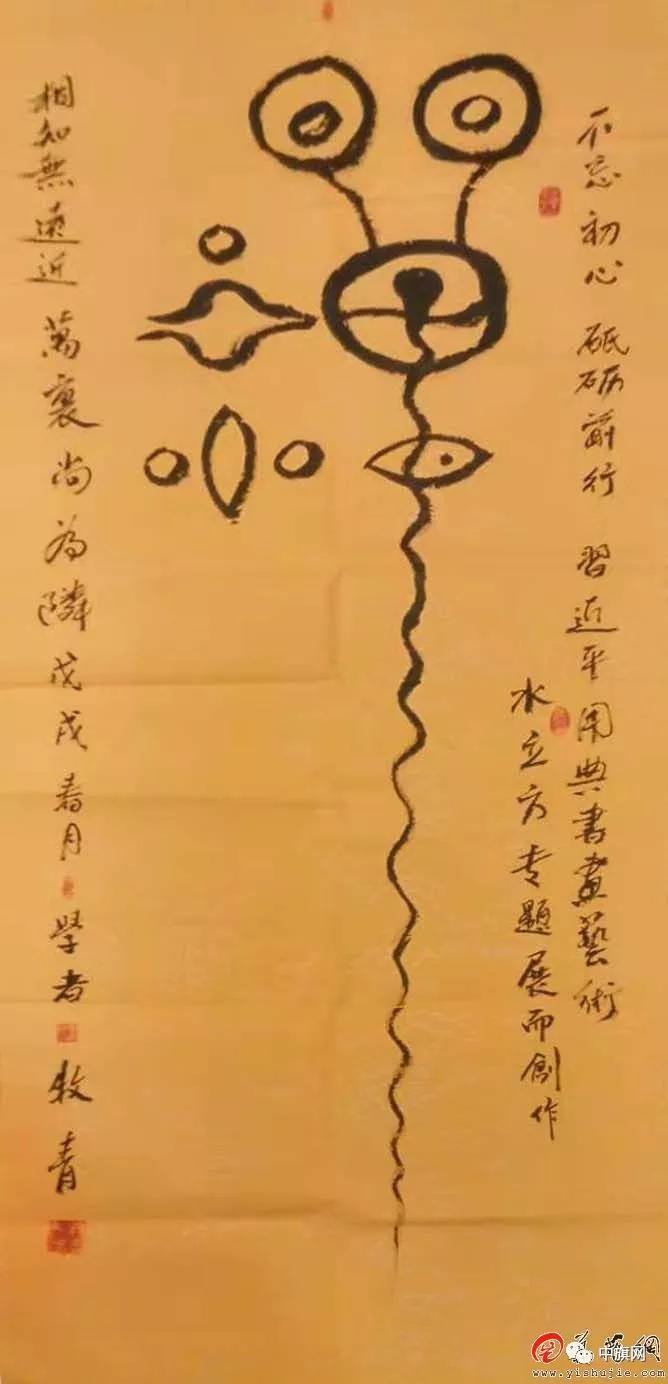 不忘初心 砥砺前行 習近平用典書畫藝術
水立方专題展而創作
相知無遠近 萬裏尚為隣 戊戌春月 學者 牧青
中旗网
www.yishujie.com